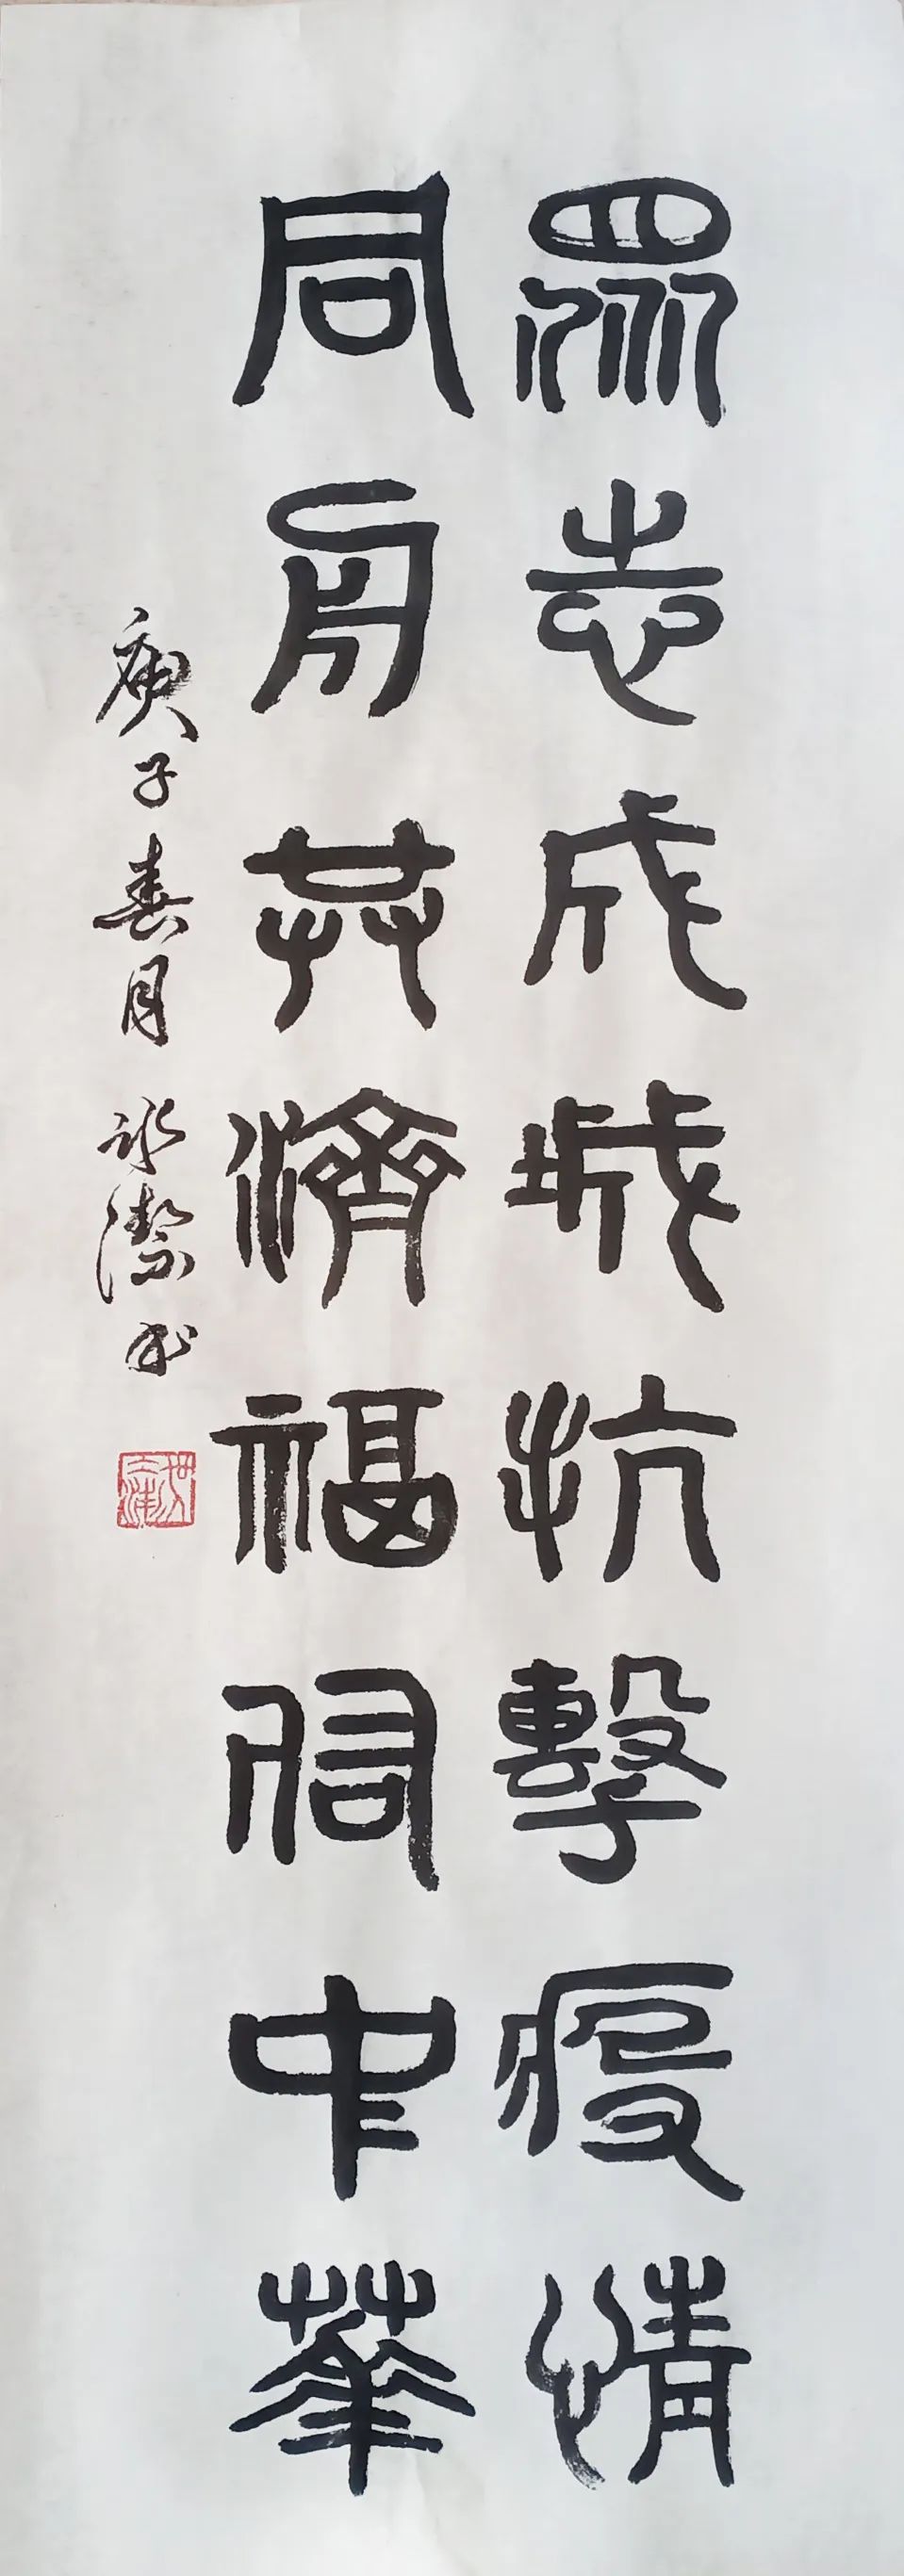 眾志成城抗擊疫情
同舟共濟福佀中華
庚子春月 冰潔书